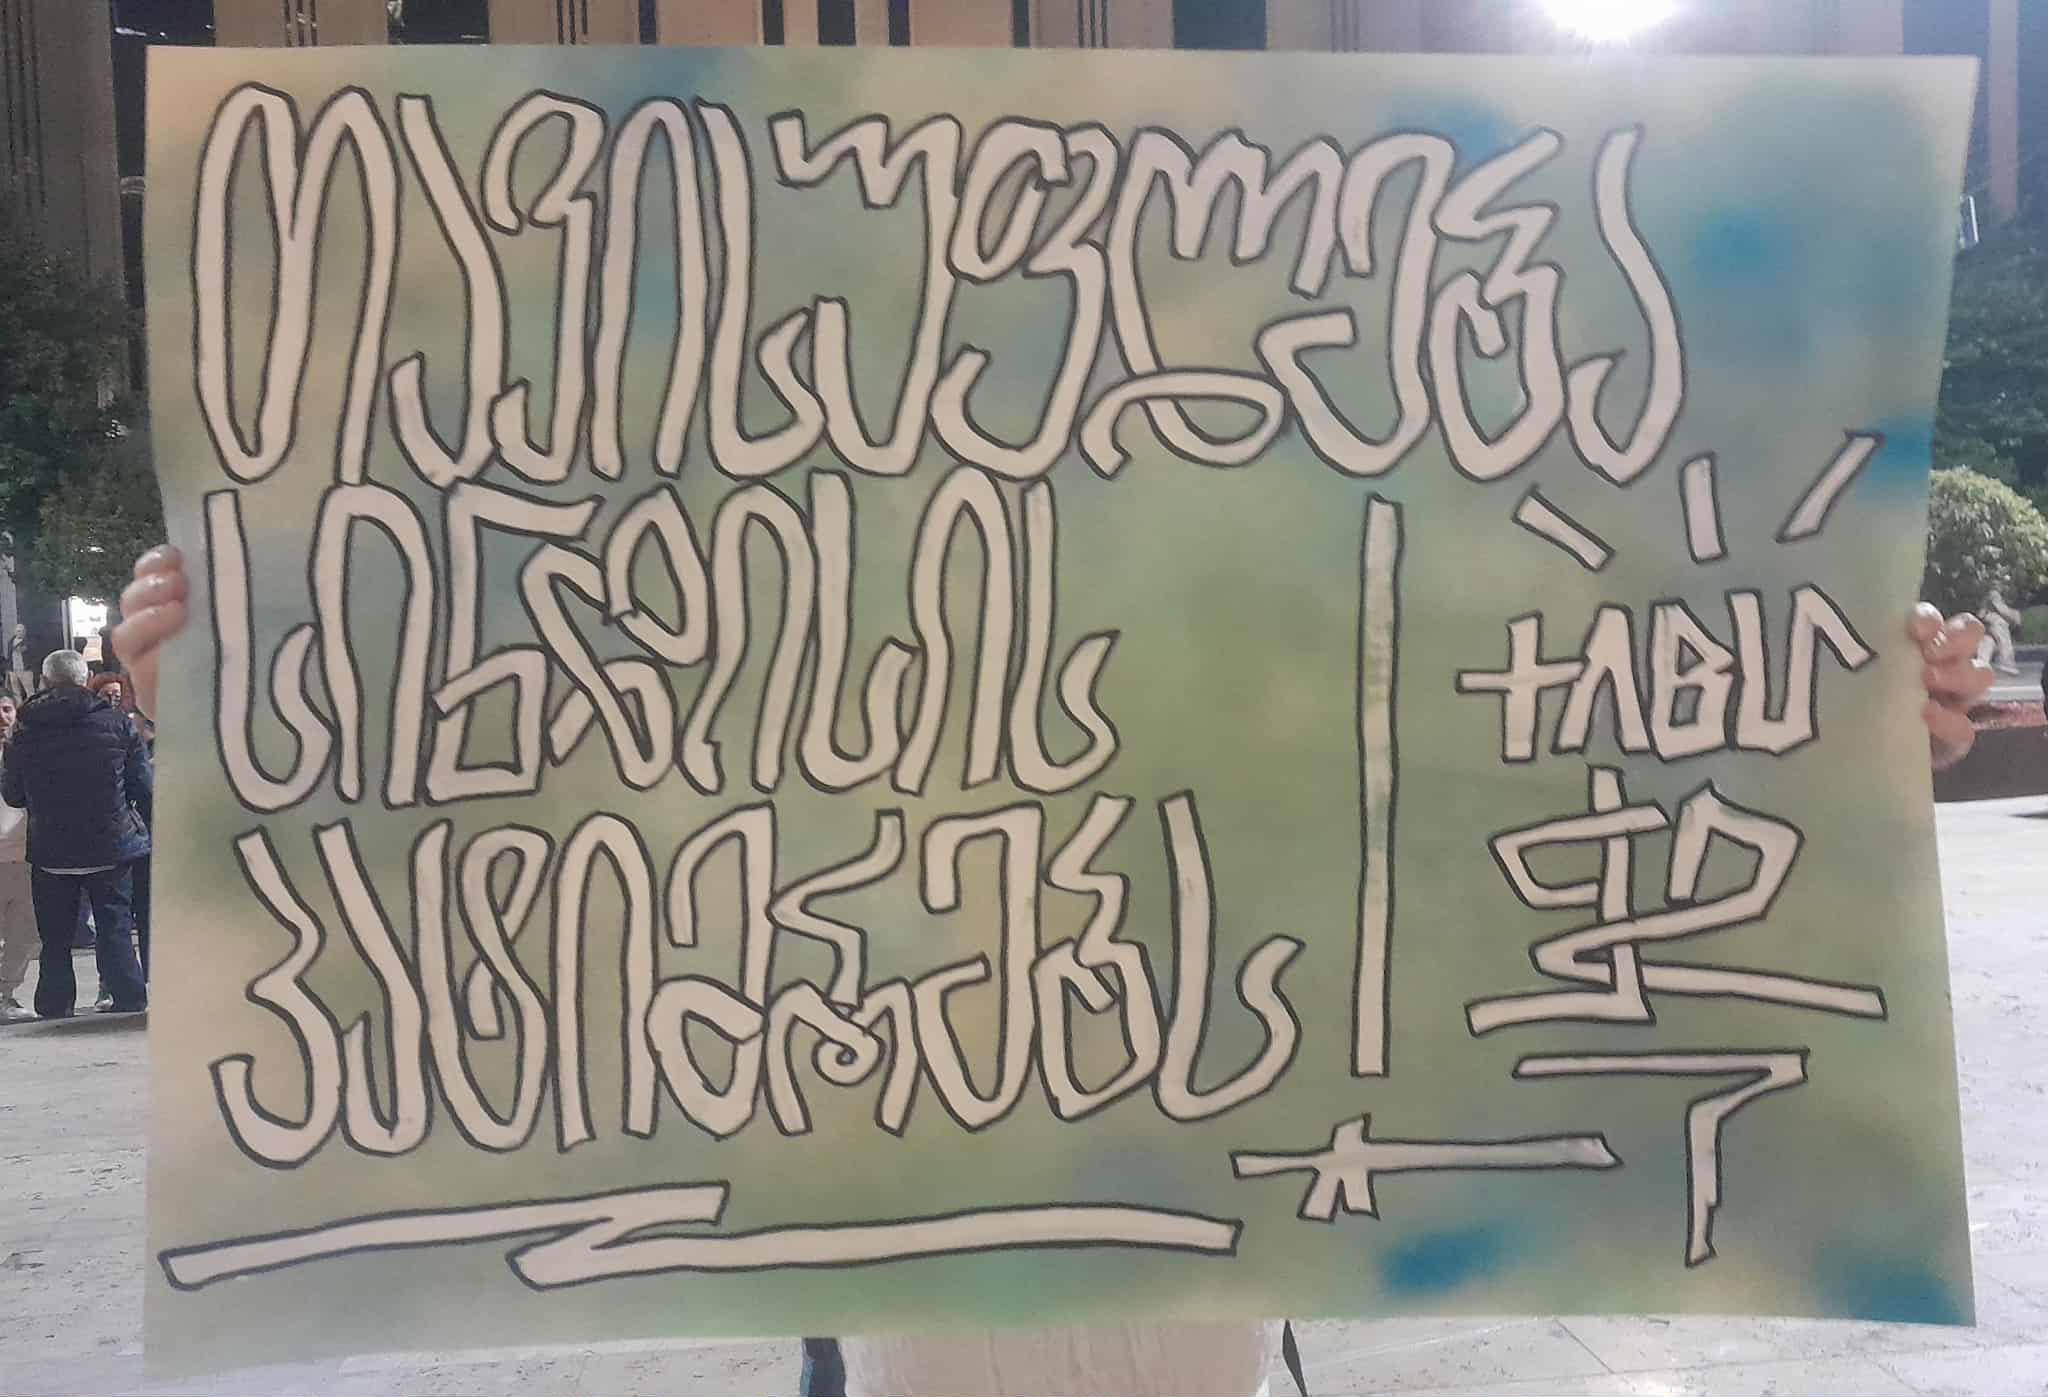 თავისუფლება
სინდისის
პატიმრებს